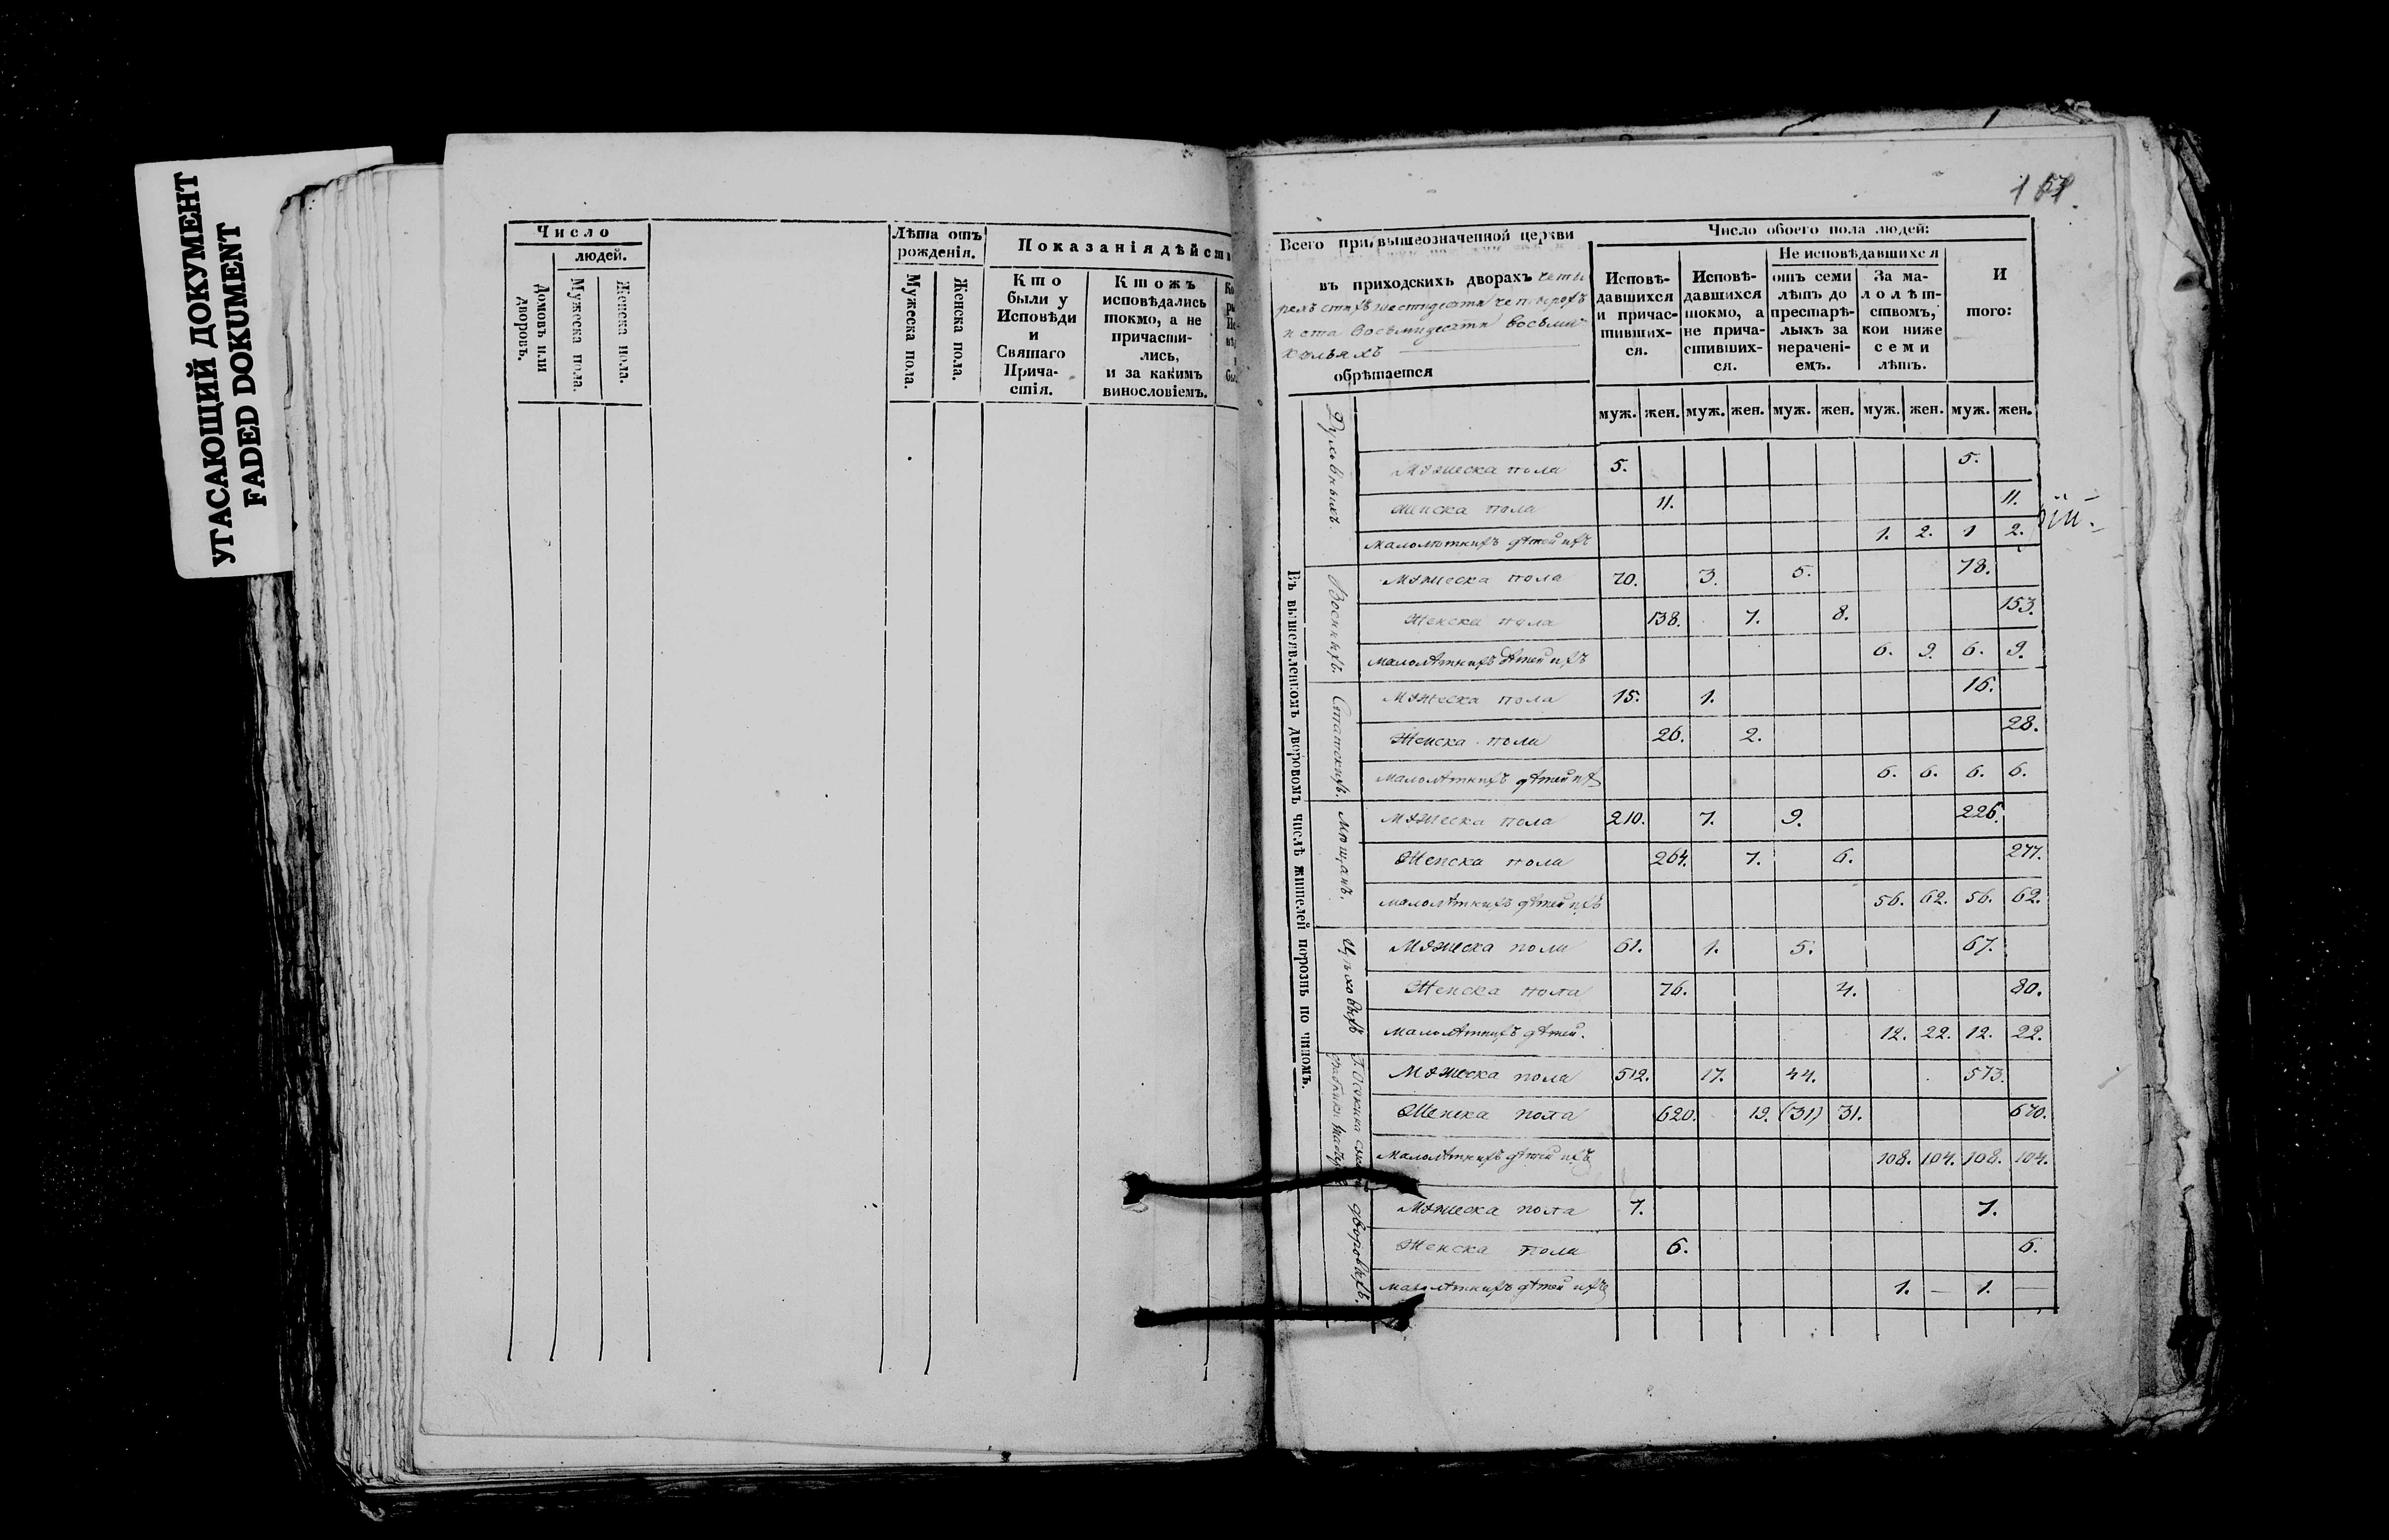 УГАСАЮЩИЙ ДОКУМЕНТ
FADED DOKUMENT
Число
людей.
Домовъ или дворовъ.
Мужеска пола.
Женска пола.
Лѣта отъ
рожденія.
Мужеска пола.
Женска пола.
Показанія дѣйств
Кто
были у
Исповѣди
и
Святаго
Прича-
стія.
Ктожъ
исповѣдались
токмо, а не
причасти-
лись,
и за какимъ
винословіемъ.
Всего при вышеозначенной церкви
въ приходскихъ дворахъ четы
рехъ стахъ шестидесяти четырохъ
и ста восьмидесяти восьми
кельяхъ
обрѣтается
Число обоего пола людей:
Исповѣ-
давшихся
и причас-
тивших-
ся.
Исповѣ-
давшихся
токмо, а
не прича-
стивших-
ся.
Не исповѣдавшихся
отъ семи
лѣтъ до
престарѣ-
лыхъ за
нерачені-
емъ.
За ма-
лолѣт-
ствомъ,
кои ниже
семи
лѣтъ.
И
того:
муж. жен. муж. жен. муж. жен. муж. жен. муж. жен.
Въ вышеявленномъ дворовомъ числѣ жителей порознь по чиномъ.
Духовныхъ.
Мужеска пола 5. 5.
Женска пола 11. 11.
Малолѣтнихъ дѣтей ихъ 1. 2. 1 2.
Военныхъ.
Мужеска пола 70. 3. 5. 78.
Женска пола 138. 7. 8. 153.
Малолѣтнихъ дѣтей ихъ 6. 9. 6. 9.
Статскихъ.
Мужеска пола 15. 1. 16.
Женска пола 26. 2. 28.
Малолѣтнихъ дѣтей ихъ 6. 6. 6. 6.
Мѣщанъ.
Мужеска пола 210. 7. 9. 226.
Женска пола 264. 7. 6. 277.
Малолѣтнихъ дѣтей ихъ 56. 62. 56. 62.
Цѣховыхъ
Мужеска пола 61. 1. 5. 67.
Женска пола 76. 4. 80.
Малолѣтнихъ дѣтей. 12. 22. 12. 22.
фабрики
Мужеска пола 512. 17. 44. 573.
Женска пола 620. 19. (31) 31. 670.
Малолѣтнихъ дѣтей ихъ 108. 104. 108. 104.
дворовыхъ.
Мужеска пола 7. 7.
Женска пола 6. 6.
Малолѣтнихъ дѣтей ихъ 1. — 1. —